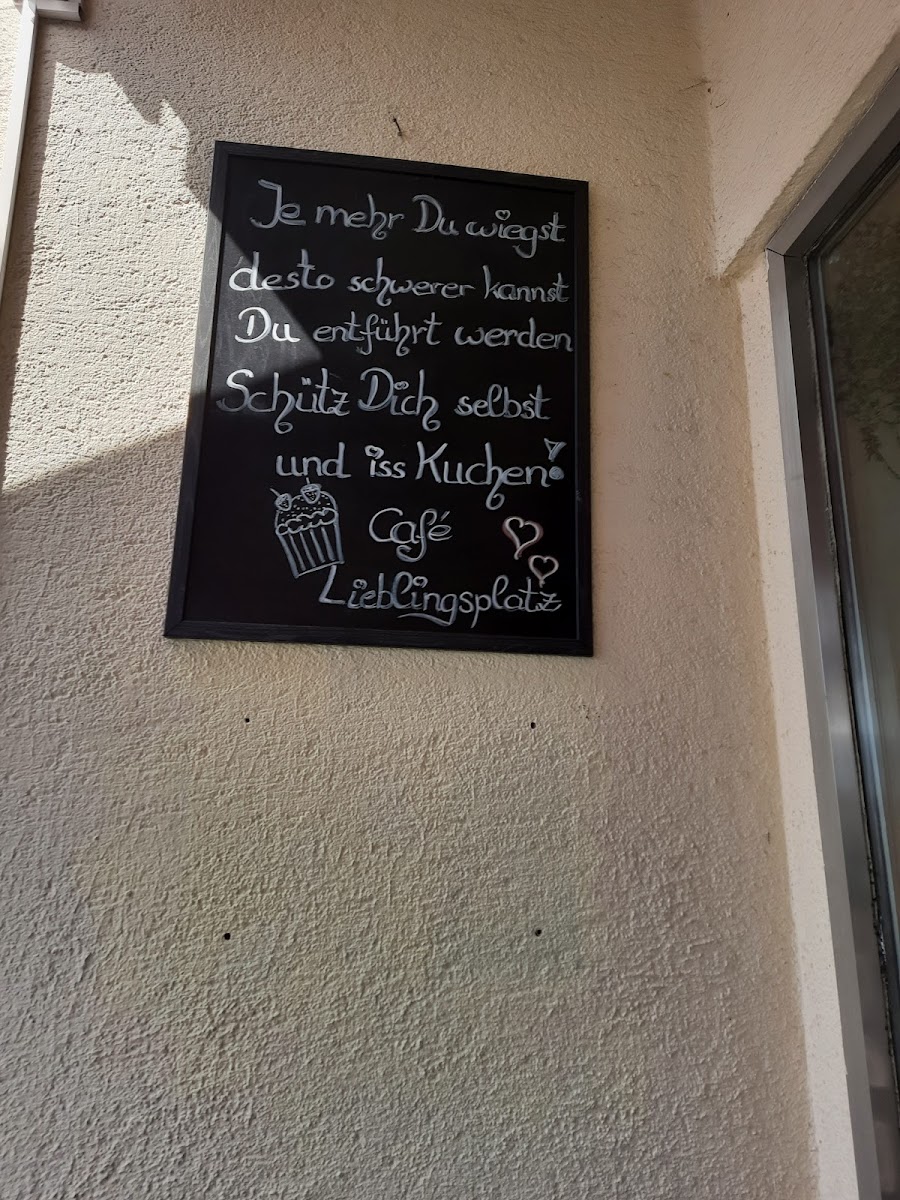 Je mehr Du wiegst
desto schwerer kannst
Du entführt werden
Schütz Dich selbst
und iss Kuchen!
Café
Lieblingsplatz